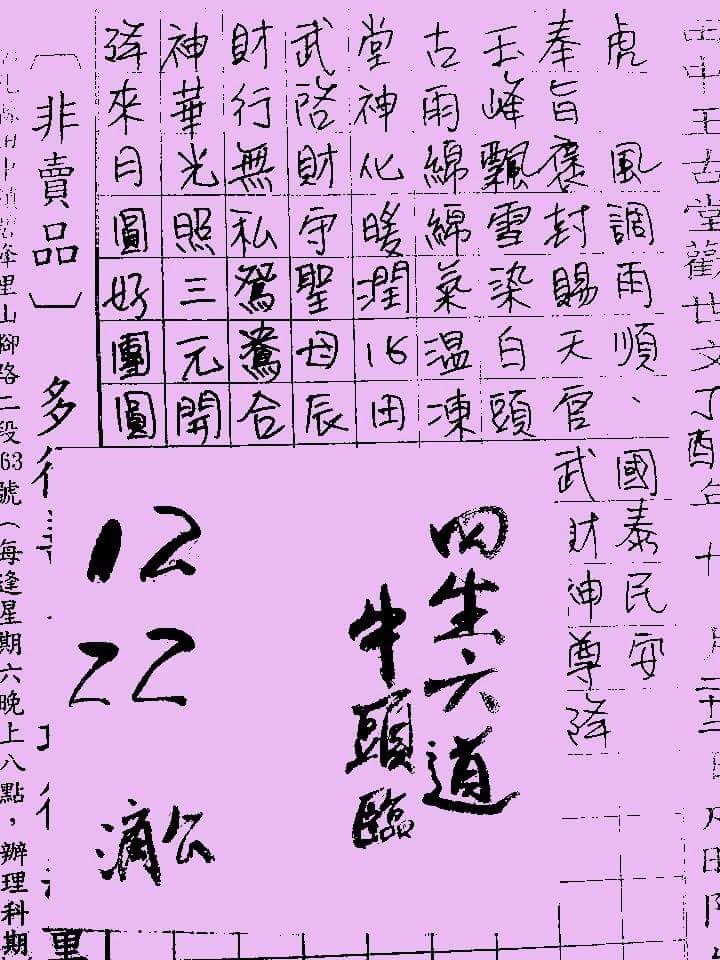 田中玉古堂觀世文丁酉年十
虎 風調雨順、國泰民安
奉旨褒封賜天官武財神尊降
玉峰飄雪染白頭
古雨綿綿氣温凍
堂神化暖潤16田
武啓財守聖母辰
財行無私鴛鴦合
神華光照三元開
降來月圓好團圓
四生六道
牛頭臨
12
22
〔非賣品〕 多行
峰里山腳路二段63號（每逢星期六晚上八點，辦理科期